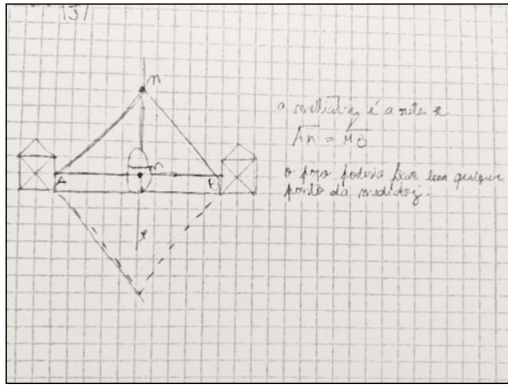 n
a mediatriz é a reta r
AM = MB
o poço poderia ficar em qualquer
ponto da mediatriz.
m
A
B
r